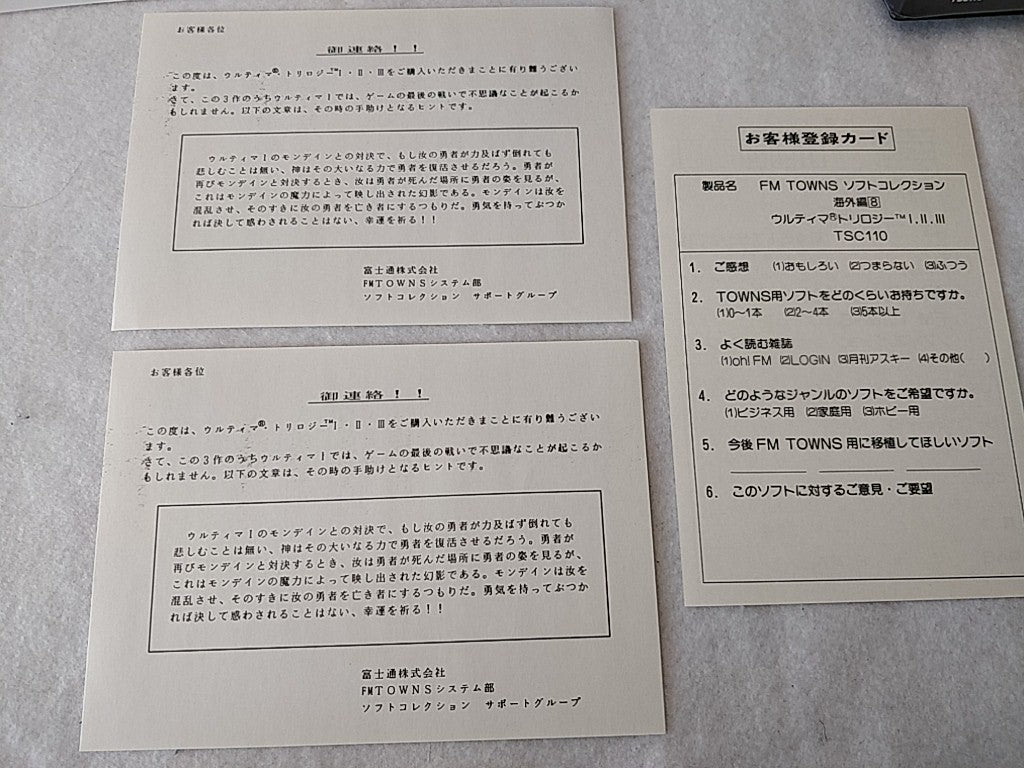 お客様各位
御連絡！！
この度は、ウルティマ®・トリロジー™I・II・IIIをご購入いただきまことに有り難うござい
ます。
さて、この3作のうちウルティマIでは、ゲームの最後の戦いで不思議なことが起こるか
もしれません。以下の文章は、その時の手助けとなるヒントです。
ウルティマIのモンデインとの対決で、もし汝の勇者が力及ばず倒れても
悲しむことは無い、神はその大いなる力で勇者を復活させるだろう。勇者が
再びモンデインと対決するとき、汝は勇者が死んだ場所に勇者の姿を見るが、
これはモンデインの魔力によって映し出された幻影である。モンデインは汝を
混乱させ、そのすきに汝の勇者を亡き者にするつもりだ。勇気を持ってぶつか
れば決して惑わされることはない、幸運を祈る！！
富士通株式会社
FMTOWNSシステム部
ソフトコレクション サポートグループ
お客様各位
御連絡！！
この度は、ウルティマ®・トリロジー™I・II・IIIをご購入いただきまことに有り難うござい
ます。
さて、この3作のうちウルティマIでは、ゲームの最後の戦いで不思議なことが起こるか
もしれません。以下の文章は、その時の手助けとなるヒントです。
ウルティマIのモンデインとの対決で、もし汝の勇者が力及ばず倒れても
悲しむことは無い、神はその大いなる力で勇者を復活させるだろう。勇者が
再びモンデインと対決するとき、汝は勇者が死んだ場所に勇者の姿を見るが、
これはモンデインの魔力によって映し出された幻影である。モンデインは汝を
混乱させ、そのすきに汝の勇者を亡き者にするつもりだ。勇気を持ってぶつか
れば決して惑わされることはない、幸運を祈る！！
富士通株式会社
FMTOWNSシステム部
ソフトコレクション サポートグループ
お客様登録カード
製品名 FM TOWNS ソフトコレクション
海外編⑧
ウルティマ®トリロジー™I.II.III
TSC110
1. ご感想 (1)おもしろい (2)つまらない (3)ふつう
2. TOWNS用ソフトをどのくらいお持ちですか。
(1)0〜1本 (2)2〜4本 (3)5本以上
3. よく読む雑誌
(1)oh!FM (2)LOGIN (3)月刊アスキー (4)その他( )
4. どのようなジャンルのソフトをご希望ですか。
(1)ビジネス用 (2)家庭用 (3)ホビー用
5. 今後FM TOWNS用に移植してほしいソフト
6. このソフトに対するご意見・ご要望